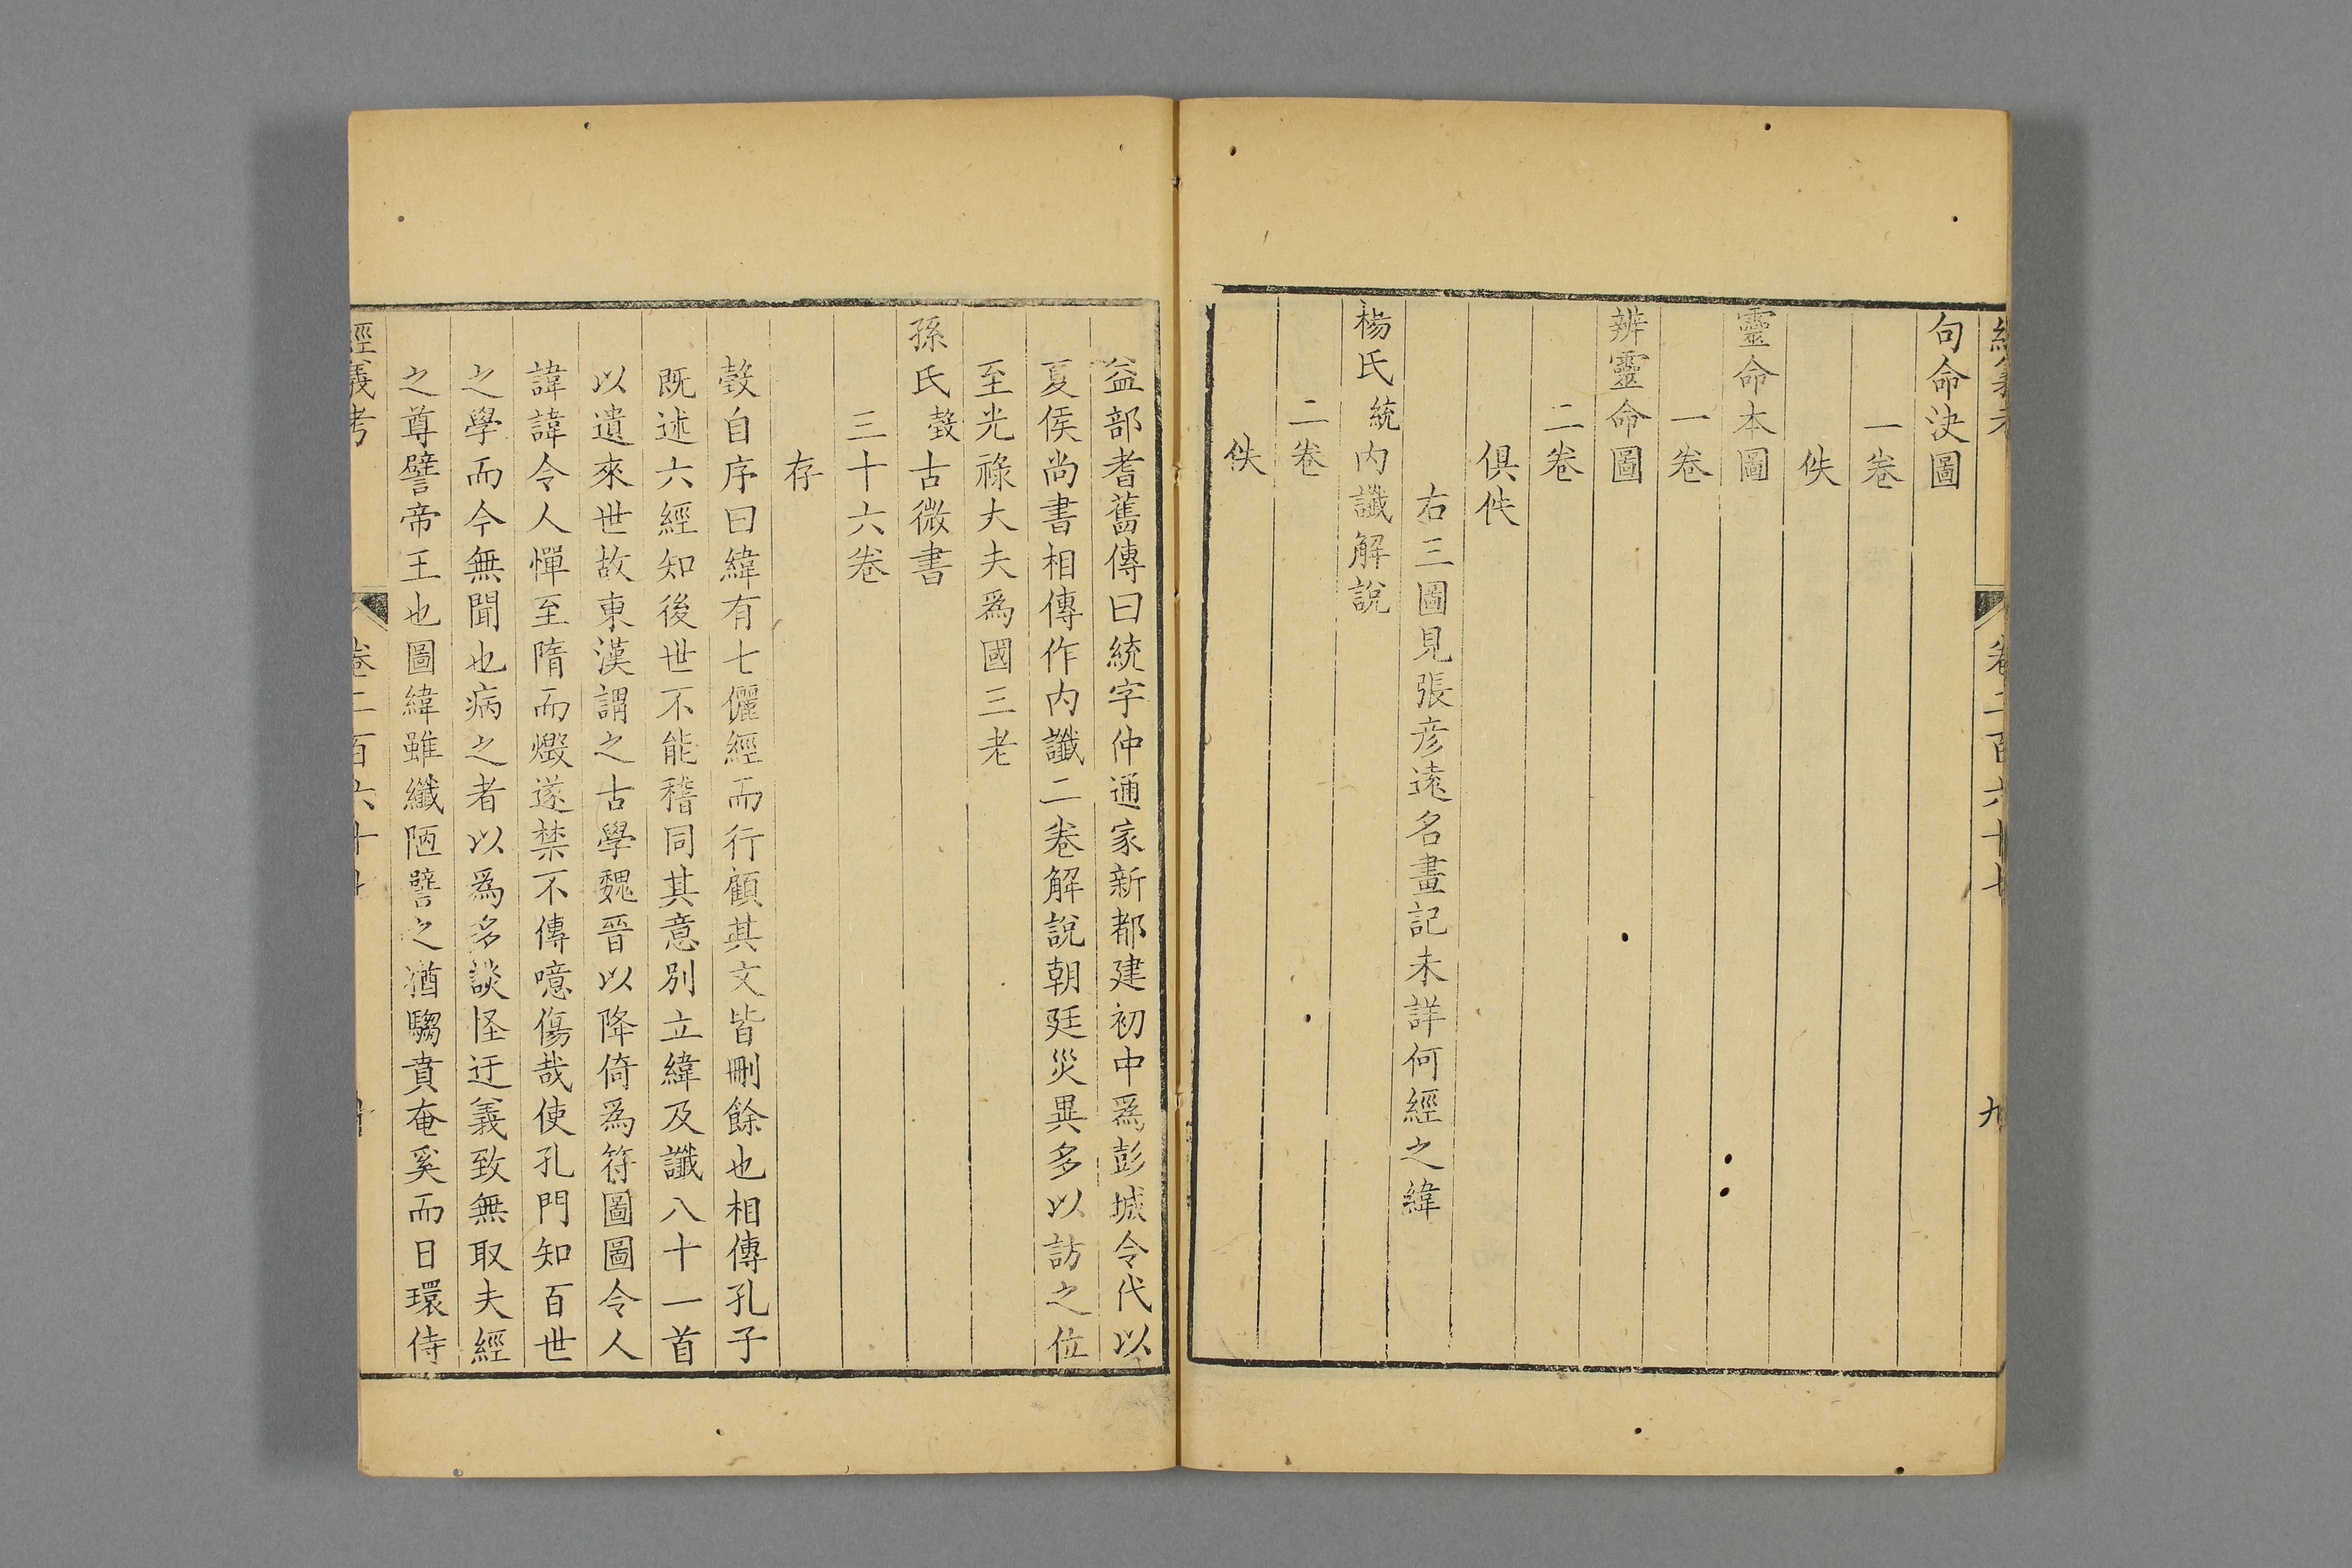 經義考 卷二百六十七 九
句命決圖
一卷
佚
靈命本圖
一卷
辨靈命圖
二卷
俱佚
右三圖見張彦遠名畫記未詳何經之緯
楊氏統内讖解說
二卷
佚
益部耆舊傳曰統字仲通家新都建初中爲彭城令代以
夏侯尚書相傳作内讖二卷解說朝廷災異多以訪之位
至光祿大夫爲國三老
孫氏瑴古微書
三十六卷
存
瑴自序曰緯有七儷經而行顧其文皆刪餘也相傳孔子
既述六經知後世不能稽同其意別立緯及讖八十一首
以遺來世故東漢謂之古學魏晉以降倚爲符圖圖令人
諱諱令人憚至隋而燬遂禁不傳噫傷哉使孔門知百世
之學而今無聞也病之者以爲多談怪迂義致無取夫經
之尊譬帝王也圖緯雖纖陋譬之猶騶賁奄奚而日環侍
經義考 卷二百六十七